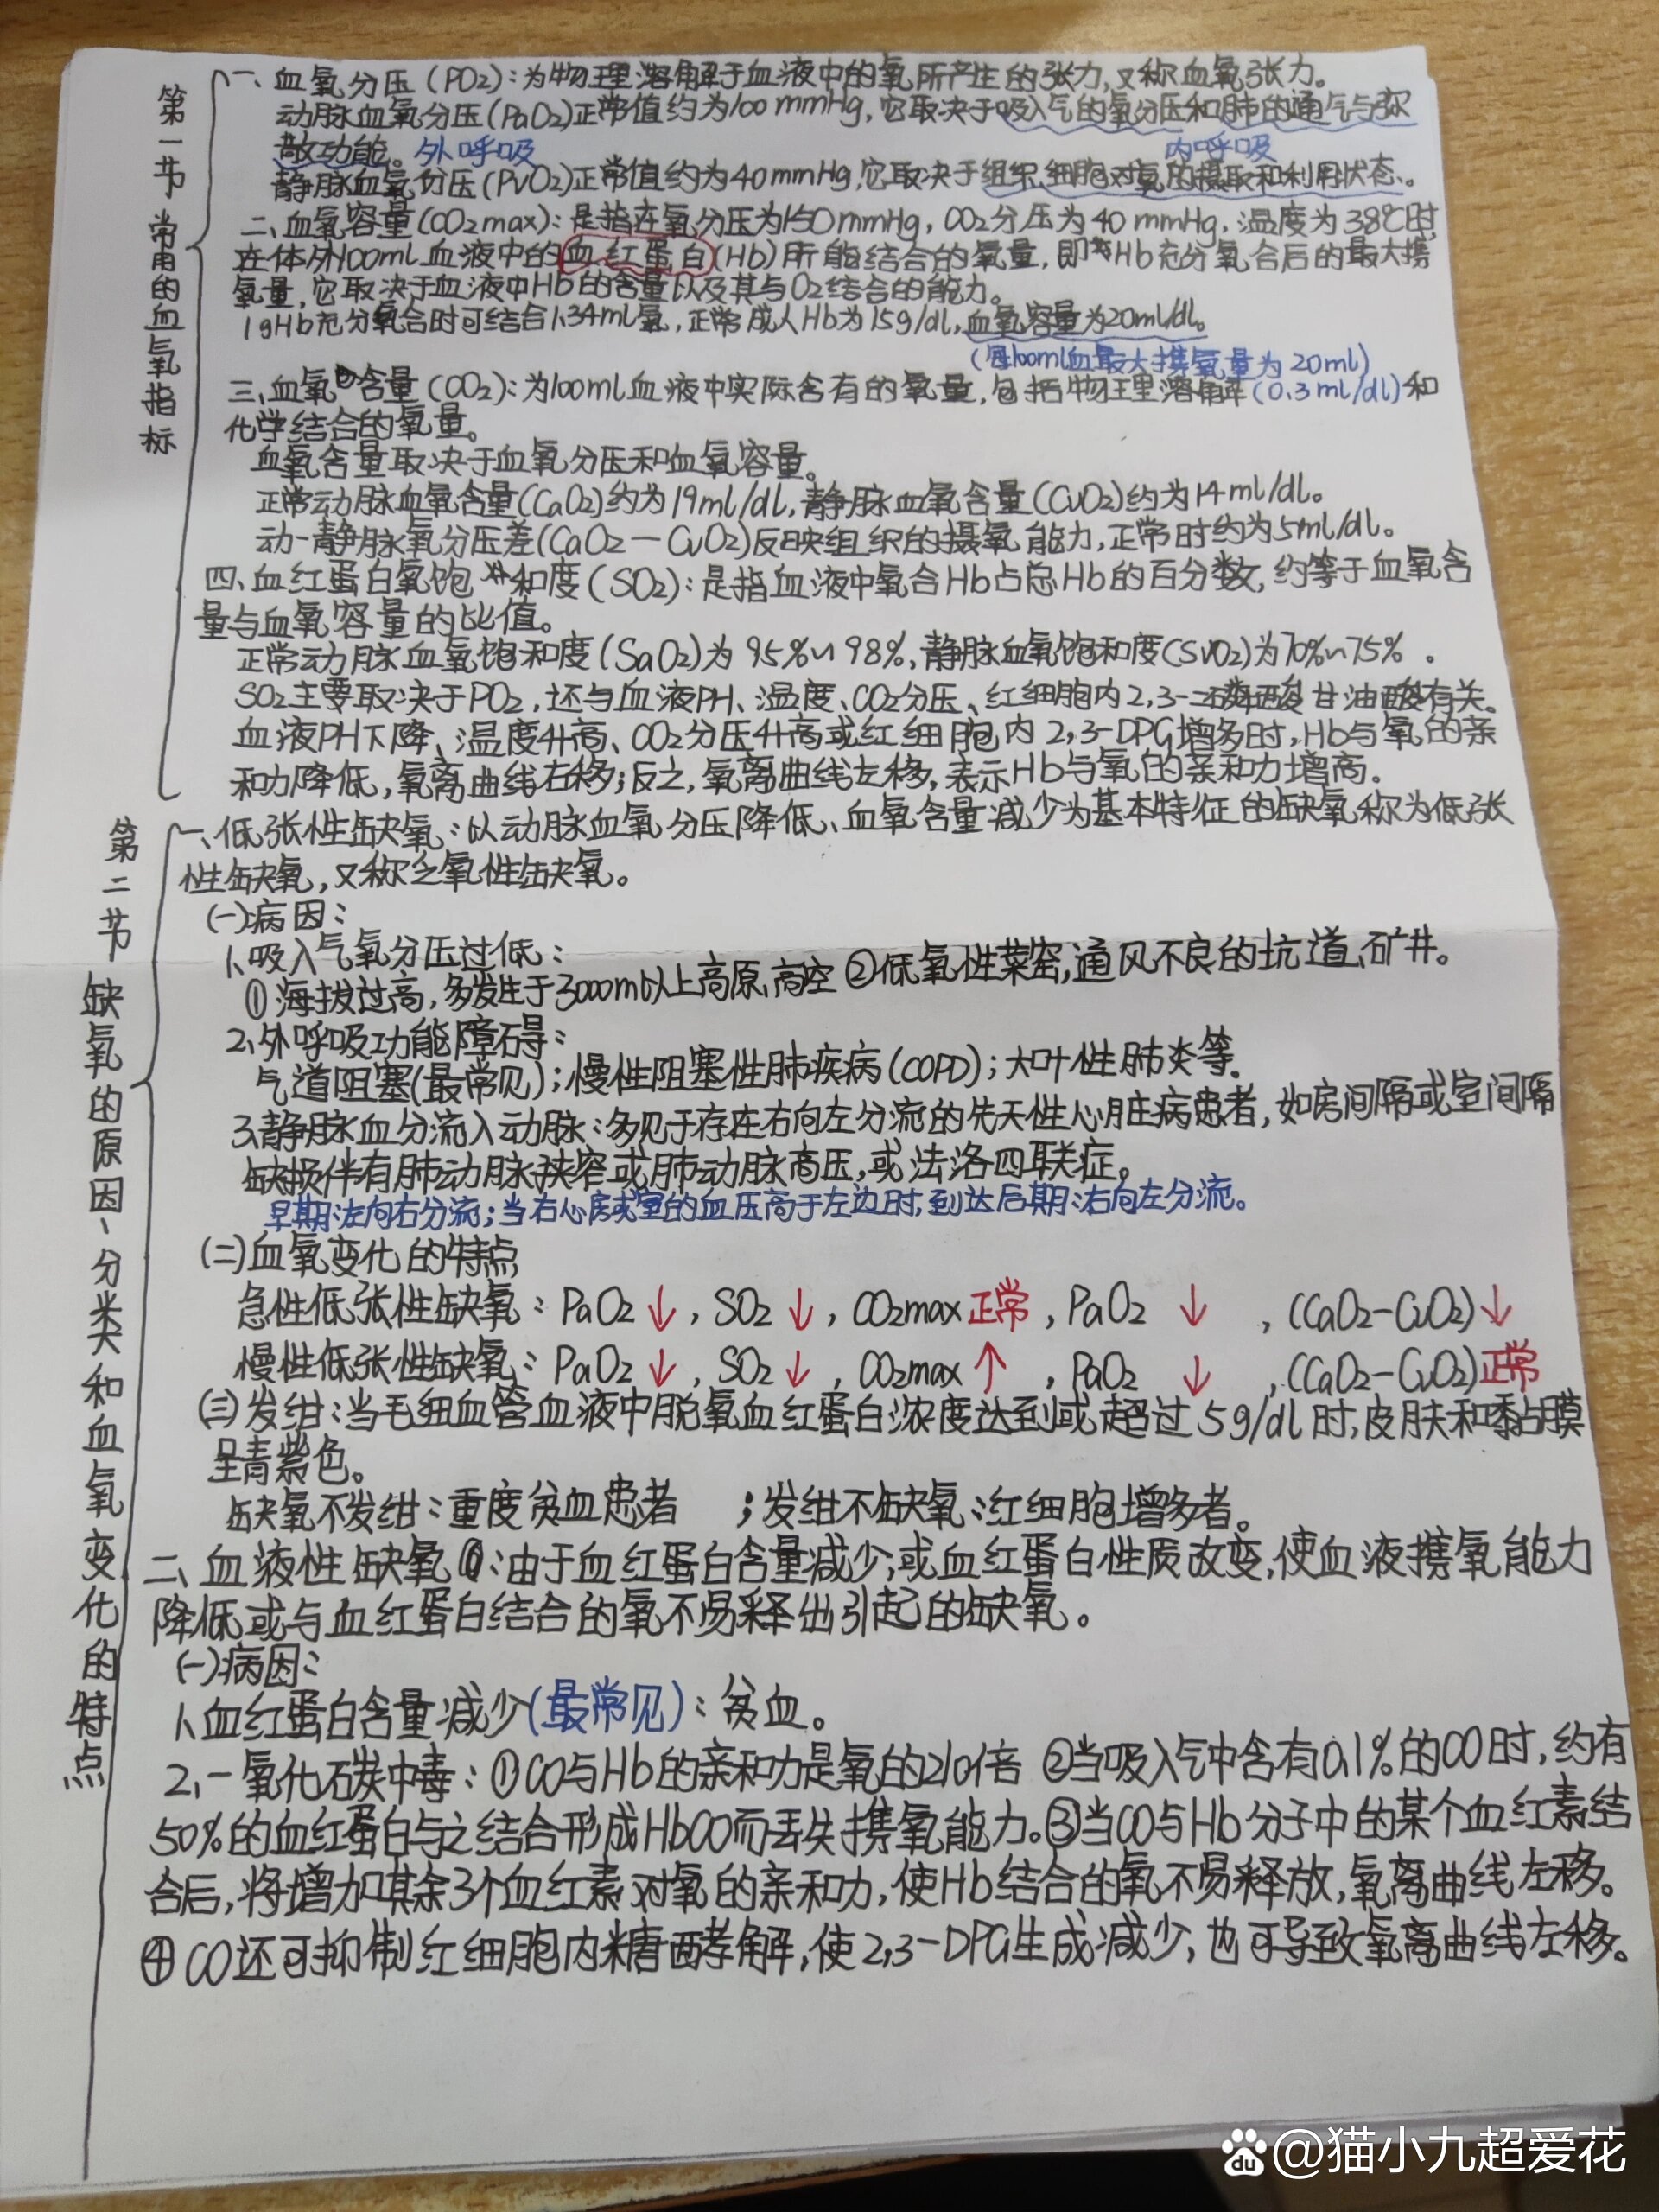 第一节 常用的血氧指标
一、血氧分压(PO2):为物理溶解于血液中的氧所产生的张力,又称血氧张力。
动脉血氧分压(PaO2)正常值约为100mmHg,它取决于吸入气的氧分压和肺的通气与弥
散功能。外呼吸
内呼吸
静脉血氧分压(PvO2)正常值约为40mmHg,它取决于组织、细胞对氧的摄取和利用状态。
二、血氧容量(CO2max):是指在氧分压为150mmHg,CO2分压为40mmHg,温度为38℃时,
在体外100ml血液中的血红蛋白(Hb)所能结合的氧量,即Hb充分氧合后的最大携
氧量,它取决于血液中Hb的含量以及其与O2结合的能力。
1gHb充分氧合时可结合1.34ml氧,正常成人Hb为15g/dl,血氧容量为20ml/dl。
(每100ml血最大携氧量为20ml)
三、血氧含量(CO2):为100ml血液中实际含有的氧量,包括物理溶解(0.3ml/dl)和
化学结合的氧量。
血氧含量取决于血氧分压和血氧容量。
正常动脉血氧含量(CaO2)约为19ml/dl,静脉血氧含量(CvO2)约为14ml/dl。
动-静脉氧分压差(CaO2-CvO2)反映组织的摄氧能力,正常时约为5ml/dl。
四、血红蛋白氧饱和度(SO2):是指血液中氧合Hb占总Hb的百分数,约等于血氧含
量与血氧容量的比值。
正常动脉血氧饱和度(SaO2)为95%~98%,静脉血氧饱和度(SvO2)为70%~75%。
SO2主要取决于PO2,还与血液PH、温度、CO2分压、红细胞内2,3-二磷酸甘油酸有关。
血液PH下降、温度升高、CO2分压升高或红细胞内2,3-DPG增多时,Hb与氧的亲
和力降低,氧离曲线右移;反之,氧离曲线左移,表示Hb与氧的亲和力增高。
第二节 缺氧的原因、分类和血氧变化的特点
一、低张性缺氧:以动脉血氧分压降低、血氧含量减少为基本特征的缺氧称为低张
性缺氧,又称乏氧性缺氧。
(一)病因:
1、吸入气氧分压过低:
①海拔过高,多发生于3000ml以上高原、高空 ②低氧性菜窑,通风不良的坑道、矿井。
2、外呼吸功能障碍:
气道阻塞(最常见);慢性阻塞性肺疾病(COPD);大叶性肺炎等.
3、静脉血分流入动脉:多见于存在右向左分流的先天性心脏病患者,如房间隔或室间隔
缺损伴有肺动脉狭窄或肺动脉高压,或法洛四联症。
早期:左向右分流;当右心房或室的血压高于左边时,到达后期:右向左分流。
(二)血氧变化的特点
急性低张性缺氧:PaO2↓,SO2↓,CO2max正常,PaO2 ↓ ,(CaO2-CvO2)↓
慢性低张性缺氧:PaO2↓,SO2↓,CO2max↑ ,PaO2 ↓ ,(CaO2-CvO2)正常
(三)发绀:当毛细血管血液中脱氧血红蛋白浓度达到或超过5g/dl时,皮肤和黏膜
呈青紫色。
缺氧不发绀:重度贫血患者 ;发绀不缺氧:红细胞增多者。
二、血液性缺氧:由于血红蛋白含量减少,或血红蛋白性质改变,使血液携氧能力
降低或与血红蛋白结合的氧不易释出引起的缺氧。
(一)病因:
1、血红蛋白含量减少(最常见):贫血。
2、一氧化碳中毒:①CO与Hb的亲和力是氧的210倍 ②当吸入气中含有0.1%的CO时,约有
50%的血红蛋白与之结合形成HbCO而丢失携氧能力。③当CO与Hb分子中的某个血红素结
合后,将增加其余3个血红素对氧的亲和力,使Hb结合的氧不易释放,氧离曲线左移。
④CO还可抑制红细胞内糖酵解,使2,3-DPG生成减少,也可导致氧离曲线左移。
du @猫小九超爱花